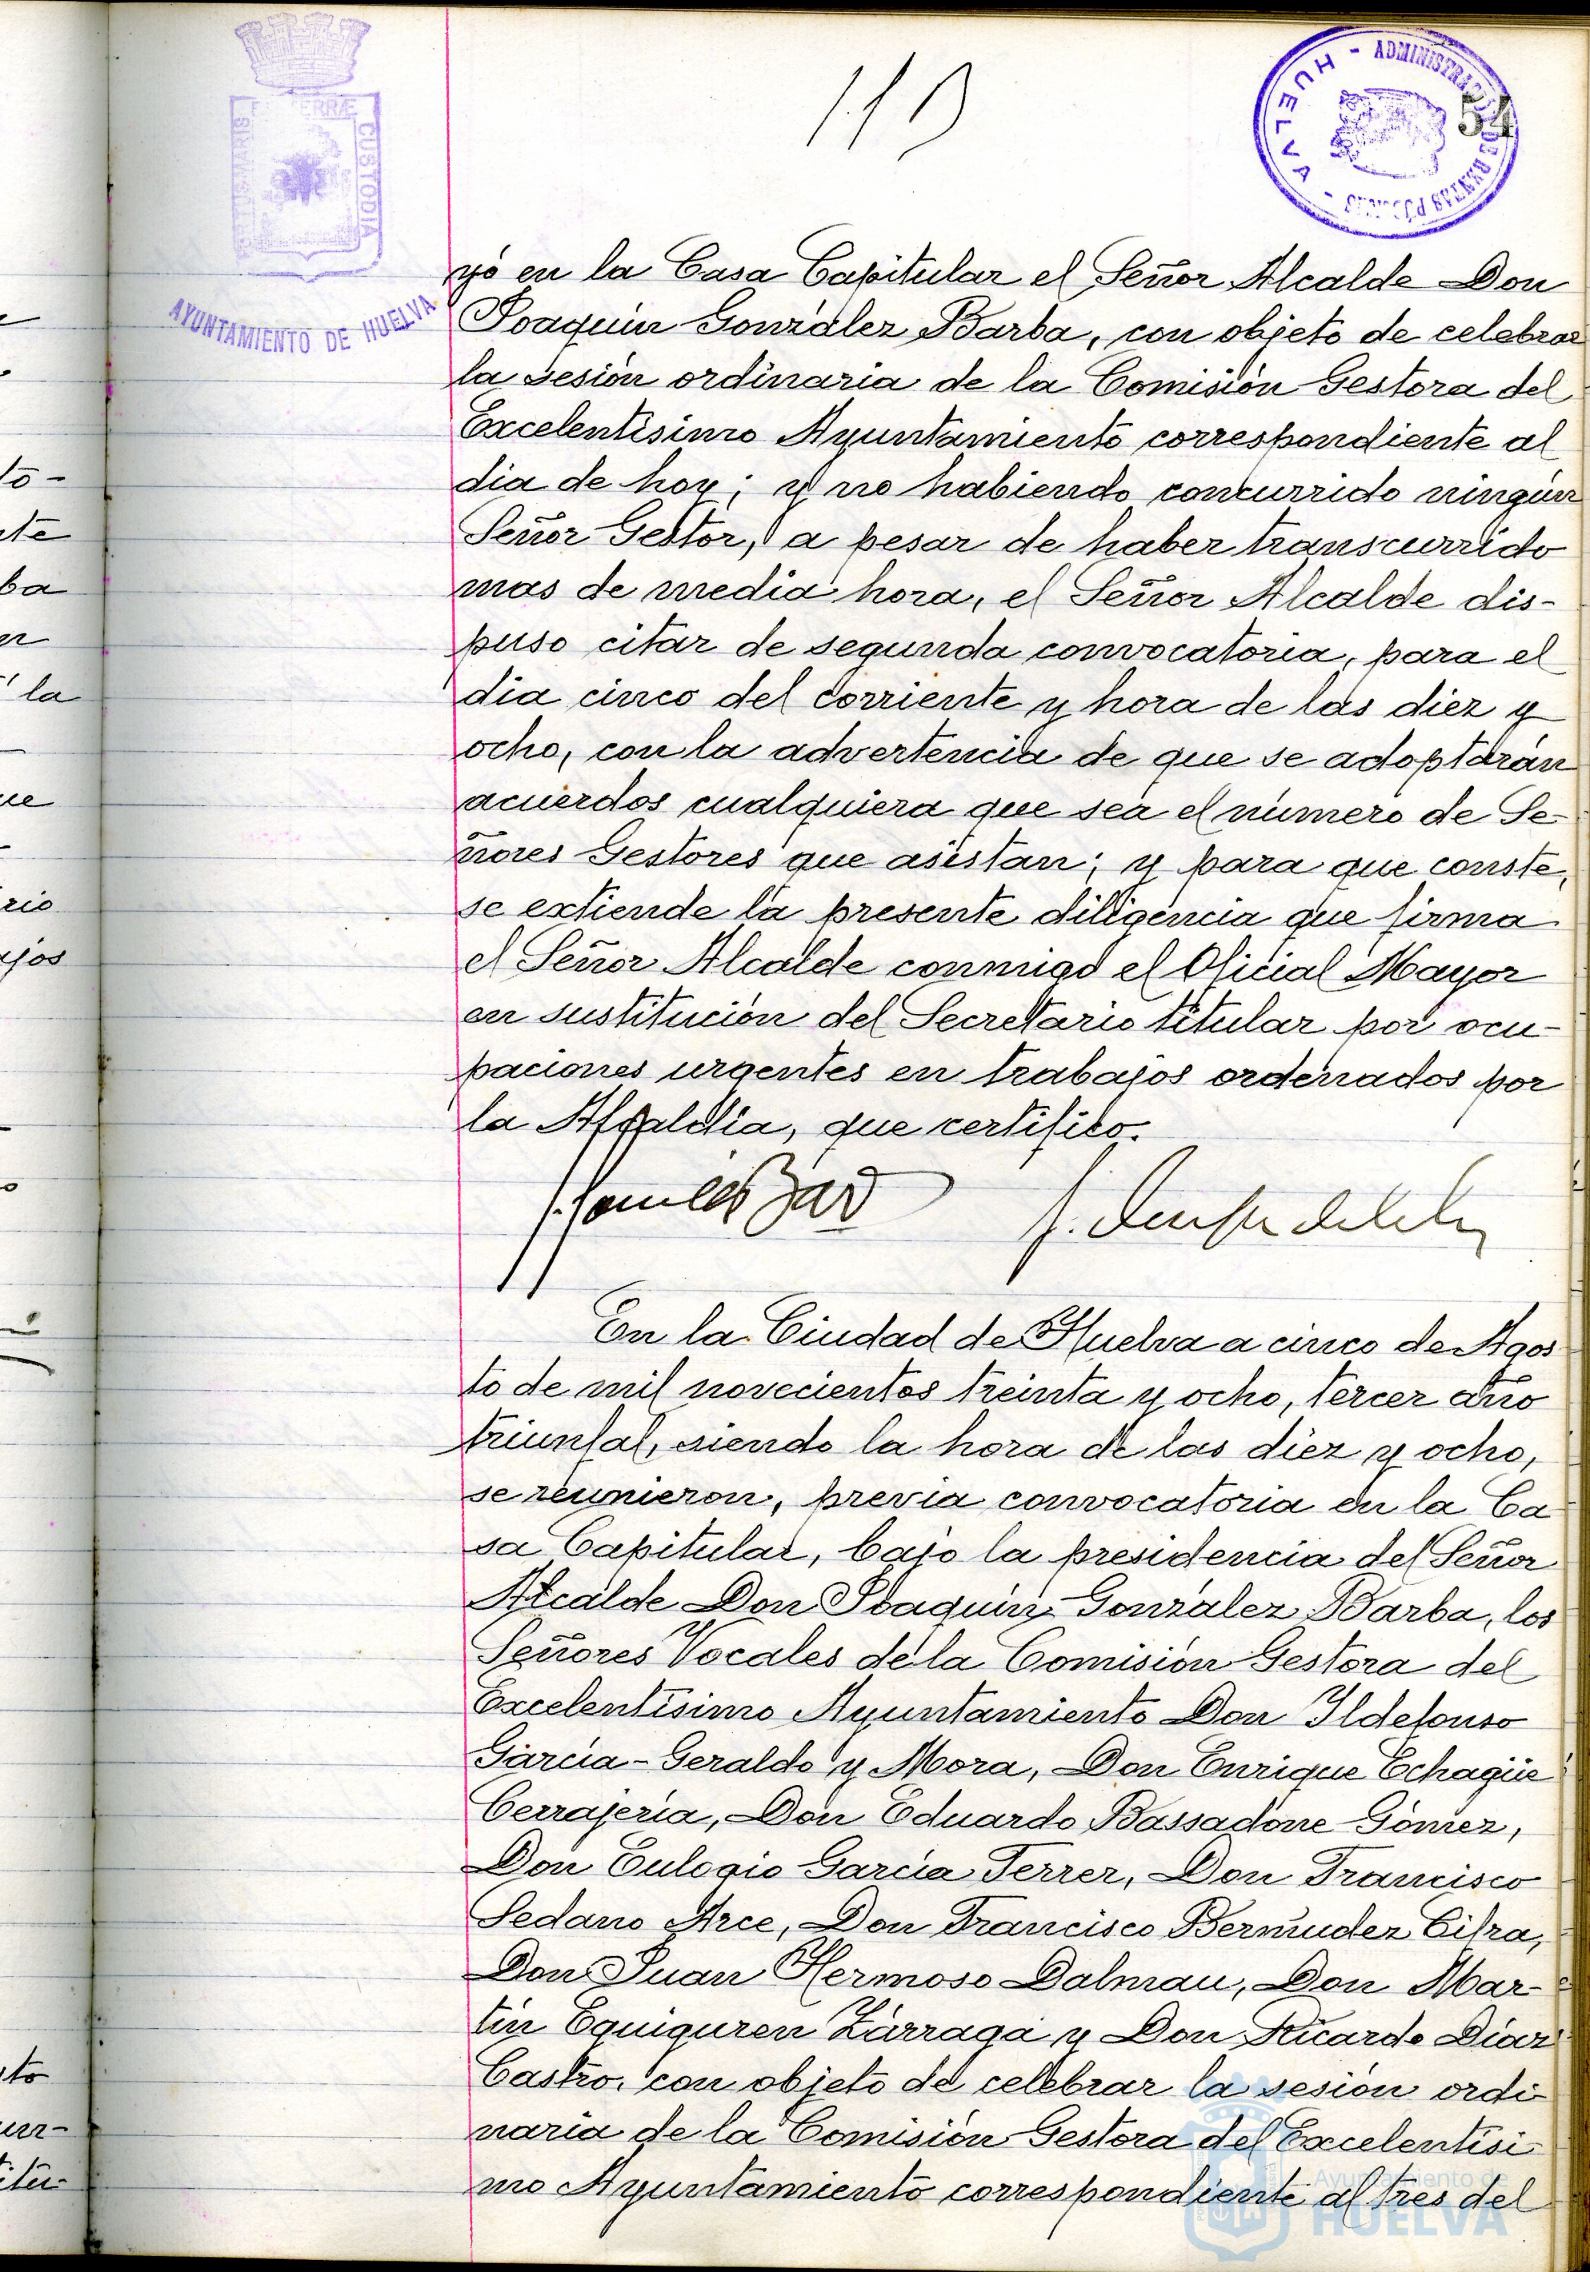 119
54
HUELVA - ADMINISTRACIÓN DE RENTAS PÚBLICAS -
PORTUS MARIS ET TERRÆ CUSTODIA
AYUNTAMIENTO DE HUELVA
yó en la Casa Capitular el Señor Alcalde Don
Joaquín González Barba, con objeto de celebrar
la sesión ordinaria de la Comisión Gestora del
Excelentísimo Ayuntamiento correspondiente al
dia de hoy; y no habiendo concurrido ningún
Señor Gestor, a pesar de haber transcurrido
mas de media hora, el Señor Alcalde dis-
puso citar de segunda convocatoria, para el
dia cinco del corriente y hora de las diez y
ocho, con la advertencia de que se adoptarán
acuerdos cualquiera que sea el número de Se-
ñores Gestores que asistan; y para que conste,
se extiende la presente diligencia que firma
el Señor Alcalde conmigo el Oficial Mayor
en sustitución del Secretario titular por ocu-
paciones urgentes en trabajos ordenados por
la Alcaldía, que certifico.
En la Ciudad de Huelva a cinco de Agos
to de mil novecientos treinta y ocho, tercer año
triunfal, siendo la hora de las diez y ocho,
se reunieron, previa convocatoria en la Ca
sa Capitular, bajo la presidencia del Señor
Alcalde Don Joaquín González Barba, los
Señores Vocales de la Comisión Gestora del
Excelentísimo Ayuntamiento Don Ildefonso
García-Geraldo y Mora, Don Enrique Echagüe
Cerrajería, Don Eduardo Bassadone Gómez,
Don Eulogio García Ferrer, Don Francisco
Sedano Arce, Don Francisco Bermudez Cifra,
Don Juan Hermoso Dalmau, Don Mar-
tín Eguiguren Zárraga y Don Ricardo Díaz
Castro, con objeto de celebrar la sesión ordi
naria de la Comisión Gestora del Excelentísi
mo Ayuntamiento correspondiente al tres del
Ayuntamiento de
HUELVA